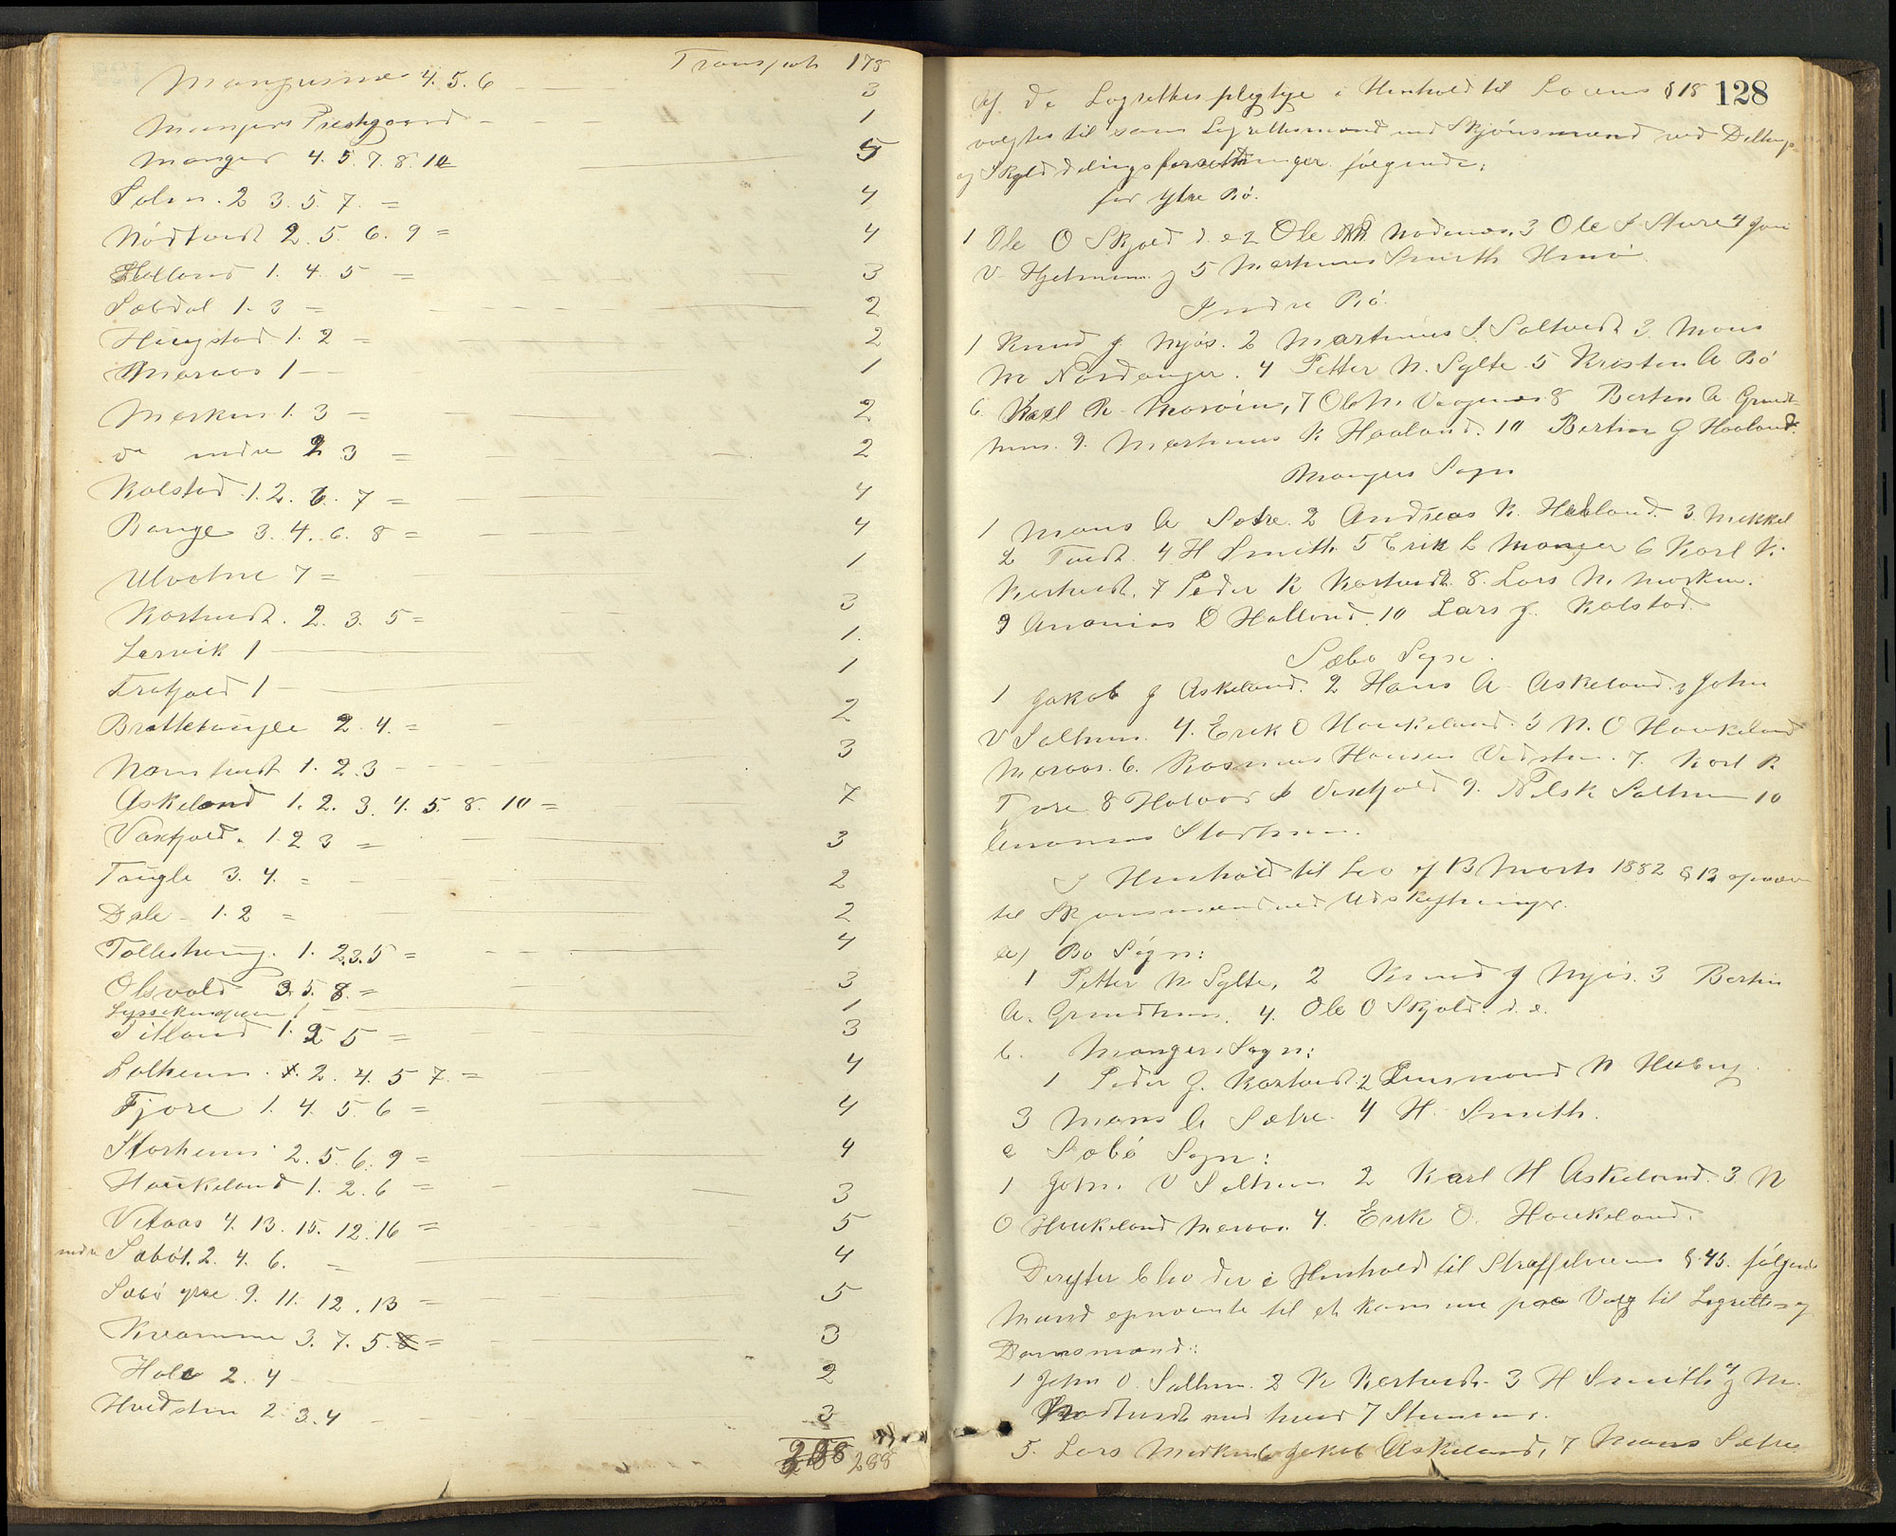 Transport 178
Mangersnes 4. 5. 6 3
Mangers Prestgaard 1
Manger 4. 5. 7. 8. 10 5
Solem. 2 3. 5. 7. = 4
Nødtvedt 2. 5. 6. 9 = 4
Holland 1. 4. 5 = 3
Sæbdal 1. 3 = 2
Hŭgstad 1. 2 = 2
Maraas 1 1
Marken 1. 3 = 2
do indre 2 3 = 2
Kolstad 1. 2. 6. 7 = 4
Bange 3. 4. 6. 8 = 4
Ulvatne 7 = 1
Kartvedt. 2. 3. 5 = 3
Larvik 1 1.
1 1
Brattetaŭgle 2. 4. = 2
1. 2. 3 3
Askeland 1. 2. 3. 4. 5. 8. 10 = 7
Vaxfjold. 1. 2 3 = 3
Taŭgle 3. 4. = 2
Dale 1. 2 = 2
1. 2.3.5 = 4
Olsvold 3. 5. 8. = 3
1 1
1. 2 5 = 3
2. 4. 5 7. = 4
Fjore 1. 4. 5. 6 = 4
Storheim 2. 5. 6. 9 = 4
Haŭkeland 1. 2. 6 = 3
Vetaas 4. 13. 15. 12. 16 = 5
indre Sæbø 1. 2. 4. 6. = 4
Sæbø ytre 9. 11. 12. 13 = 5
Kvamme 3. 7. 5. 8 = 3
Hole 2. 4 2
Hvidsten 2. 3. 4 3
288 288
128
Af de Lagrettespligtige i Henhold til Loven § 18
valgtes til som Lagrettesmænd ved Skjønsmænd ved Delings
og Skylddelingsforretninger følgende:
for ytre Bø.
1 Ole O Skjold d. e 2 Ole Nodenæs. 3 Ole I Sture 4
V. Hjelmen og 5 Martinus Smith
Indre Bø.
1 Knud J Njøs. 2 Martinus I. Soltvedt 3. Mons
M Nordanger. 4 Petter N. Sylte 5 Kristen A Bø
6. Karl R. 7 Ole N. Vaagenes 8 Bertin A. Grind-
hem. 9. Martinus K Haaland. 10 Bertin J Haaland.
Mangers Sogn
1 Mons A Sætre. 2 Andreas K. Halland. 3. Mikkel
L Tvedt. 4 H Smith 5 Erik L Manger 6 Karl K.
Kartvedt. 7 Peder K Kartvedt 8. Lars N. Marken.
9 Ananias O Halland. 10 Lars J. Kolstad.
Sæbø Sogn.
1 Jakob J Askeland. 2 Hans A. Askeland. 3 John
V Solhem. 4. Erik O Haukeland. 5 N. O Haukeland
Maraas. 6. Rasmus Hansen Vidsten. 7. Karl R.
Fjore 8 Halvor I Vaxfjold 9. Nils K Solhem 10
Ananias Storheim.
I Henhold til Lov af 13 Marts 1882 § 13 opnævn
til Skjønsmænd ved Udskiftninger.
a) Bø Sogn:
1 Petter N Sylte, 2 Knud J Njøs. 3 Bertin
A. Grindhem. 4. Ole O Skjold. d. e.
b. Mangers Sogn:
1 Peder J. Kartvedt 2 Lensmand N
3 Mons A Sætre. 4 H. Smith.
c Sæbø Sogn:
1 John V Solhem 2 Karl H Askeland. 3 N
O Haukeland Maraas. 4. Erik O. Haukeland.
Derefter blev der i Henhold til Straffeloven § 45. følgende
Mænd opnævnte til at komme paa Valg til Lagrettes og
Domsmænd:
1 John V. Solhem. 2 K Kartvedt. 3 H Smith 4 M.
Nodtvedt med hver 7 Stemmer.
5. Lars Marken 6 Jakob Askeland, 7 Mons Sætre